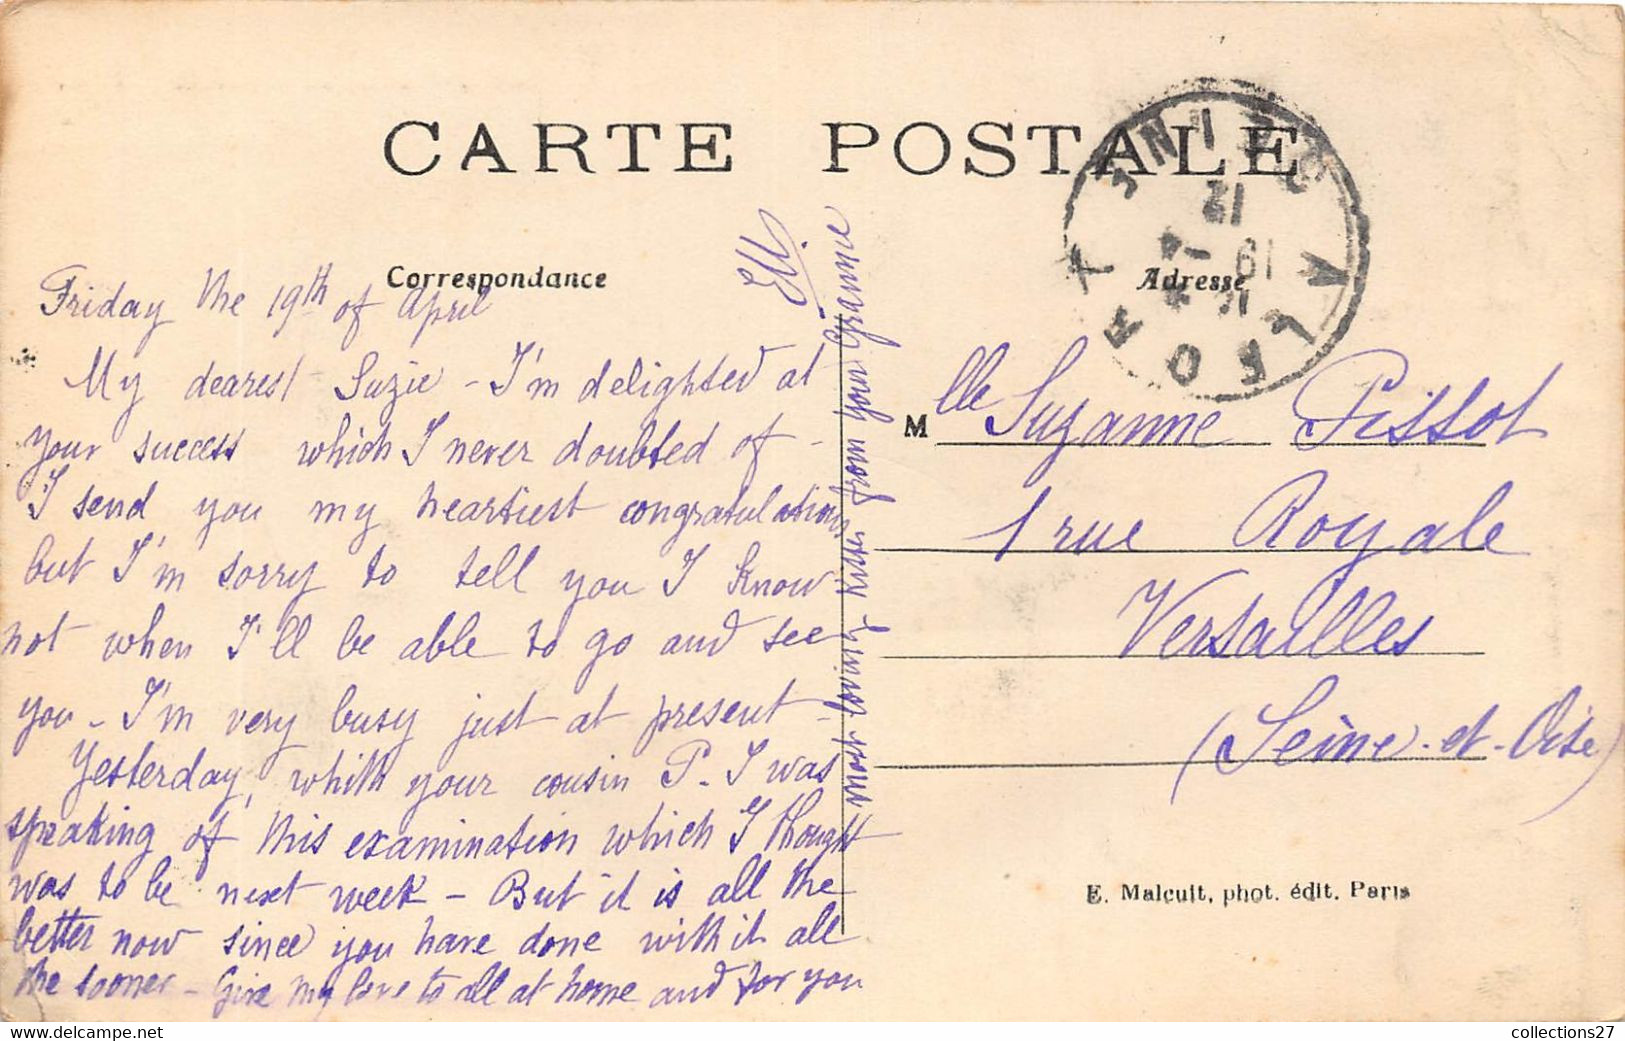 CARTE POSTALE
Correspondance
Friday the 19th of April
My dearest Suzie - I'm delighted at
your success which I never doubted of -
I send you my heartiest congratulations
but I'm sorry to tell you I know
not when I'll be able to go and see
you - I'm very busy just at present -
Yesterday, whith your cousin P. I was
speaking of this examination which I thought
was to be next week - But it is all the
better now since you have done with it all
the sooner - Give my love to all at home and for you
most loving kisses from your Grannie
Adresse
12
19 - 4
Mlle Suzanne Pissot
1 rue Royale
Versailles
(Seine-et-Oise)
E. Malcuit, phot. édit. Paris
collections27